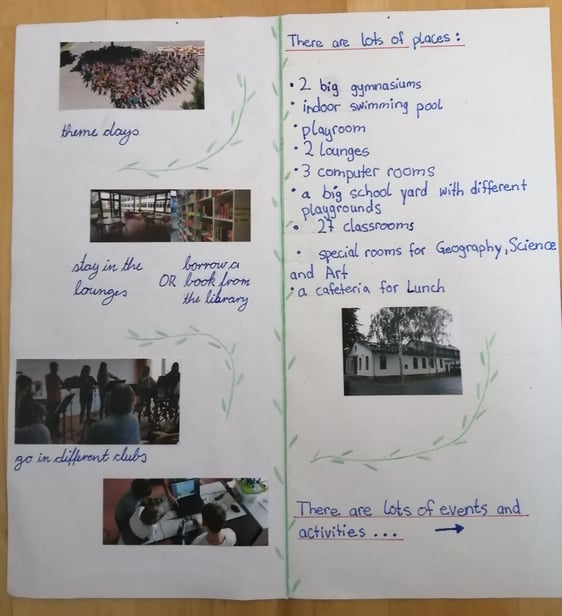 theme days
stay in the
lounges
OR
borrow a
book from
the library
go in different clubs
There are lots of places:
• 2 big gymnasiums
• indoor swimming pool
• playroom
• 2 lounges
• 3 computer rooms
• a big school yard with different
playgrounds
• 27 classrooms
• special rooms for Geography, Science
and Art
• a cafeteria for Lunch
There are lots of events and
activities ... →